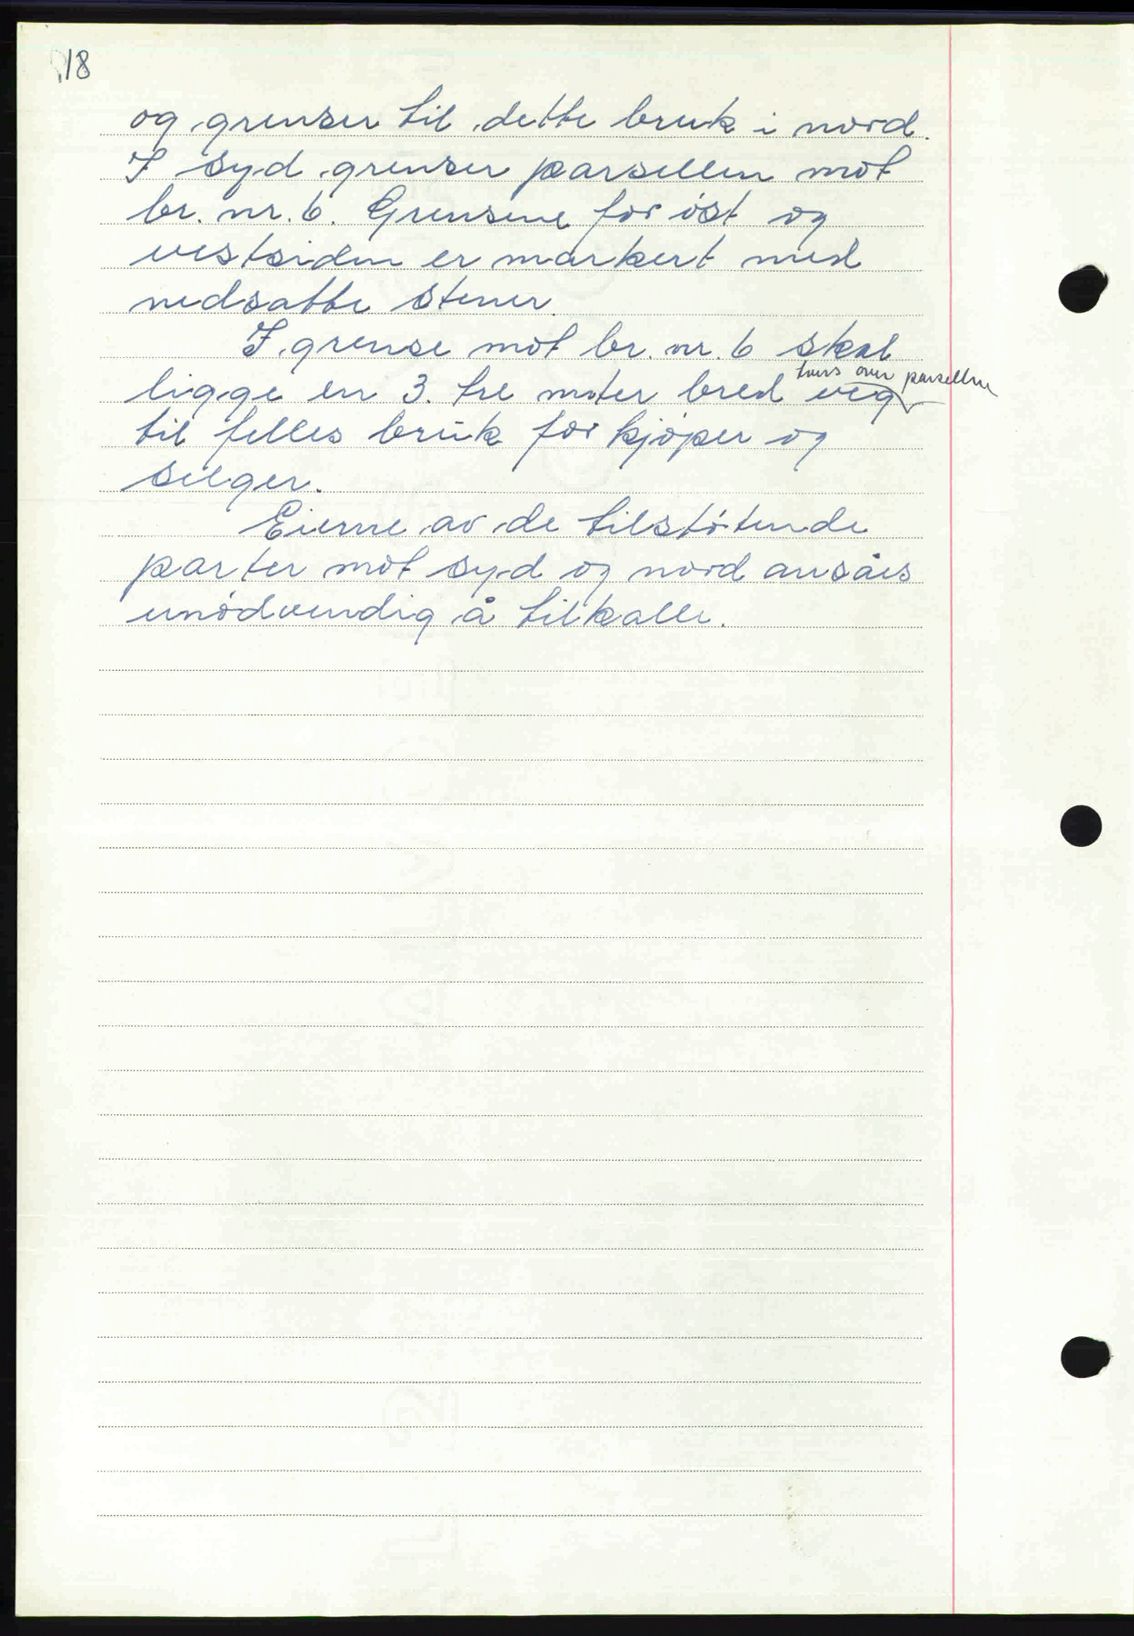 18
og grenser til dette bruk i nord.
I syd grenser parsellen mot
br. nr. 6. Grensene for øst og
vestsiden er markert med
nedsatte stener.
I grense mot br. nr. 6 skal
tvers over parsellen
ligge en 3. tre meter bred veg
til felles bruk for kjøper og
selger.
Eierne av de tilstøtende
parter mot syd og nord ansåes
unødvendig å tilkalle.